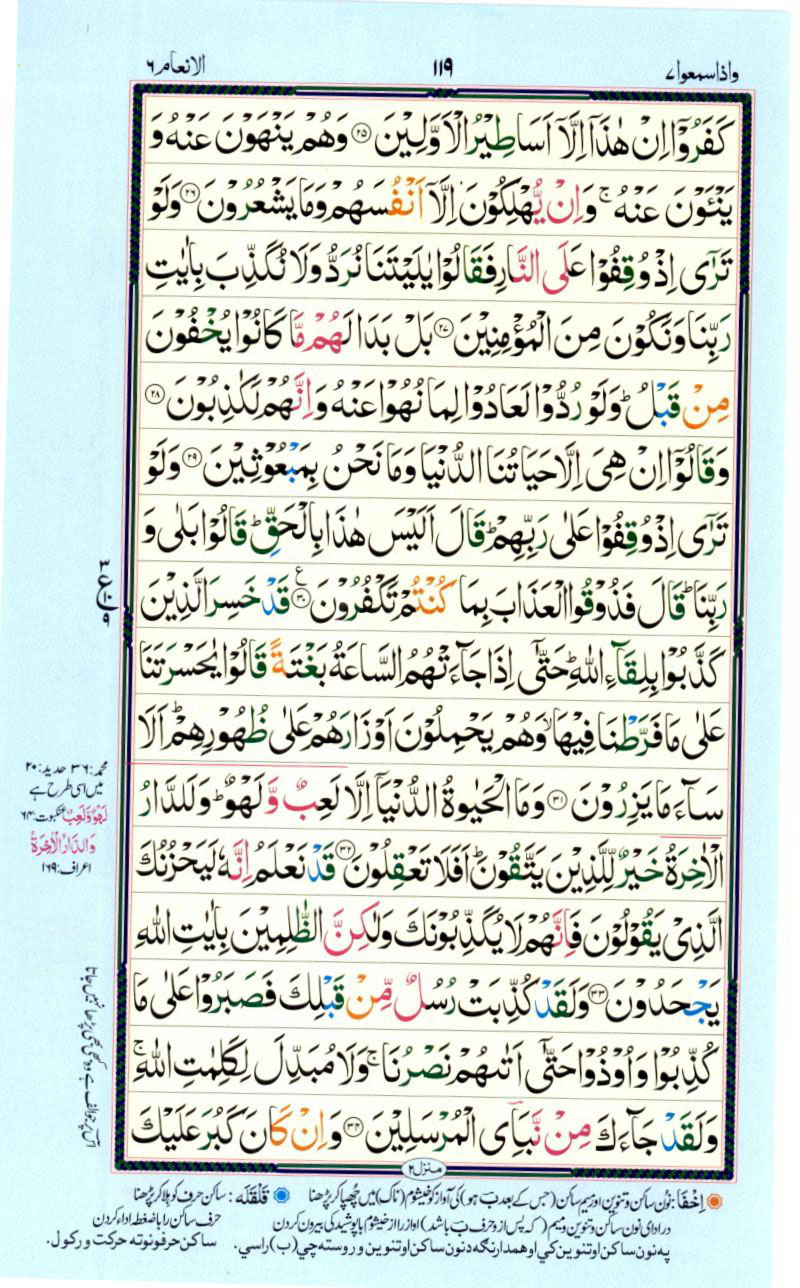 واذاسمعوا۷
۱۱۹
الانعام۶
كَفَرُوْۤا اِنْ هٰذَاۤ اِلَّاۤ اَسَاطِيْرُ الْاَوَّلِيْنَ ﴿۲۵﴾ وَهُمْ يَنْهَوْنَ عَنْهُ وَ
يَنْـَٔوْنَ عَنْهُ ۚ وَاِنْ يُّهْلِكُوْنَ اِلَّاۤ اَنْفُسَهُمْ وَمَا يَشْعُرُوْنَ ﴿۲۶﴾ وَلَوْ
تَرٰۤى اِذْ وُقِفُوْا عَلَى النَّارِ فَقَالُوْا يٰلَيْتَنَا نُرَدُّ وَلَا نُكَذِّبَ بِاٰيٰتِ
رَبِّنَا وَنَكُوْنَ مِنَ الْمُؤْمِنِيْنَ ﴿۲۷﴾ بَلْ بَدَا لَهُمْ مَّا كَانُوْا يُخْفُوْنَ
مِنْ قَبْلُ ؕ وَلَوْ رُدُّوْا لَعَادُوْا لِمَا نُهُوْا عَنْهُ وَاِنَّهُمْ لَكٰذِبُوْنَ ﴿۲۸﴾
وَقَالُوْۤا اِنْ هِىَ اِلَّا حَيَاتُنَا الدُّنْيَا وَمَا نَحْنُ بِمَبْعُوْثِيْنَ ﴿۲۹﴾ وَلَوْ
تَرٰۤى اِذْ وُقِفُوْا عَلٰى رَبِّهِمْ ؕ قَالَ اَلَيْسَ هٰذَا بِالْحَقِّ ؕ قَالُوْا بَلٰى وَ
رَبِّنَا ؕ قَالَ فَذُوْقُوا الْعَذَابَ بِمَا كُنْتُمْ تَكْفُرُوْنَ ﴿۳۰﴾ قَدْ خَسِرَ الَّذِيْنَ
كَذَّبُوْا بِلِقَآءِ اللّٰهِ ؕ حَتّٰۤى اِذَا جَآءَتْهُمُ السَّاعَةُ بَغْتَةً قَالُوْا يٰحَسْرَتَنَا
عَلٰى مَا فَرَّطْنَا فِيْهَا ۙ وَهُمْ يَحْمِلُوْنَ اَوْزَارَهُمْ عَلٰى ظُهُوْرِهِمْ ؕ اَلَا
سَآءَ مَا يَزِرُوْنَ ﴿۳۱﴾ وَمَا الْحَيٰوةُ الدُّنْيَاۤ اِلَّا لَعِبٌ وَّلَهْوٌ ؕ وَلَلدَّارُ
الْاٰخِرَةُ خَيْرٌ لِّلَّذِيْنَ يَتَّقُوْنَ ؕ اَفَلَا تَعْقِلُوْنَ ﴿۳۲﴾ قَدْ نَعْلَمُ اِنَّهٗ لَيَحْزُنُكَ
الَّذِىْ يَقُوْلُوْنَ فَاِنَّهُمْ لَا يُكَذِّبُوْنَكَ وَلٰكِنَّ الظّٰلِمِيْنَ بِاٰيٰتِ اللّٰهِ
يَجْحَدُوْنَ ﴿۳۳﴾ وَلَقَدْ كُذِّبَتْ رُسُلٌ مِّنْ قَبْلِكَ فَصَبَرُوْا عَلٰى مَا
كُذِّبُوْا وَاُوْذُوْا حَتّٰۤى اَتٰىهُمْ نَصْرُنَا ۚ وَلَا مُبَدِّلَ لِكَلِمٰتِ اللّٰهِ ۚ
وَلَقَدْ جَآءَكَ مِنْ نَّبَاِى الْمُرْسَلِيْنَ ﴿۳۴﴾ وَاِنْ كَانَ كَبُرَ عَلَيْكَ
۳
ع
۱۰
۹
محمد:۳۶ حدید:۲۰
میں اسی طرح ہے
لَهْوٌ وَّلَعِبٌ عنکبوت:۶۴
وَالدَّارُ الْاٰخِرَةُ
اعراف:۱۶۹
منزل۲
اِخْفَا: نون ساکن و تنوین اور میم ساکن (جس کے بعد ب ہو) کی آواز کو خیشوم (ناک) میں چھپا کر پڑھنا قَلْقَلَہ: ساکن حرف کو ہلا کر پڑھنا
در ادای نون ساکن و تنوین و میم (که پس از و حرف ب باشد) اواز را از خیشوم با پوشیدگی بیرون کردن حرف ساکن را با ضغطه ادا کردن
په نون ساکن او تنوین کي او همدارنگه د نون ساکن او تنوین وروسته چي (ب) راسي. ساکن حرفونو ته حرکت ورکول.